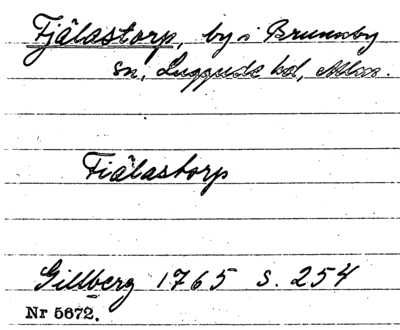 Fjälastorp, by i Brunnby
sn, Luggude hd, Mlhs.
Fiälastorp
Gillberg 1765 s. 254
Nr 5672.